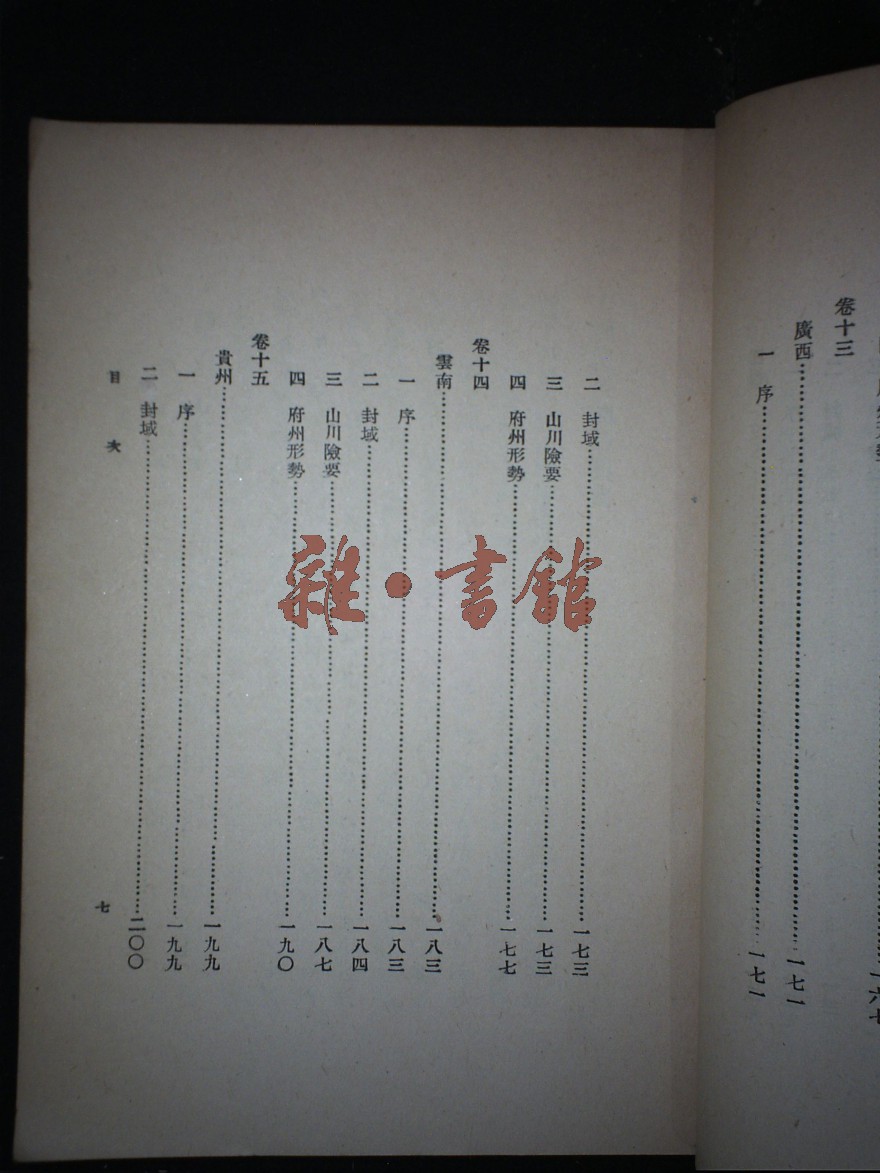 府州形勢……一六七
卷十三
廣西……一七一
一 序……一七一
二 封域……一七三
三 山川險要……一七三
四 府州形勢……一七七
卷十四
雲南……一八三
一 序……一八三
二 封域……一八四
三 山川險要……一八七
四 府州形勢……一九〇
卷十五
貴州……一九九
一 序……一九九
二 封域……二〇〇
目次
七
雜·書館